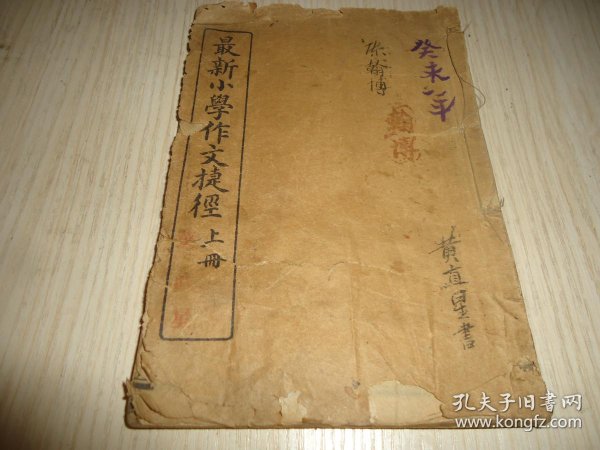 最新小學作文捷徑 上冊
癸未年
翰博
黃直星書
孔夫子旧書网
www.kongfz.com